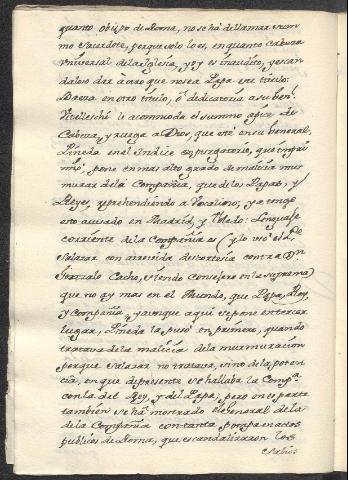 quanto obispo de Roma, no se hà de llamar Sum
mo Sacerdote, porque solo lo es, en quanto cabeza
universal de la Iglesia, y oy es inaudito, y escan
daloso dar à otro que no sea Papa este titulo:
en otro titulo, ò dedicatoria a su Gen.l
Vitelleschi le acomoda el summo apice de
Cabeza, y ruega a Dios, que esté en su General.
Pineda en el Indice expurgatorio, que impri
mio, pone en mas alto grado de malicia mur
murar de la Compañia, que de los Papas, y
Reyes, reprehendiendo a ; ya tengo
esto avisado en Madrid, y Toledo: Lenguaje
corriente de la Compañia es (y lo usò el P.e
Salazar con atrevida descortesia contra Dn
Gonzalo , siendo Consejero en la suprema)
que no ay mas en el Mundo, que Papa, Rey,
y Compañia, y aunque aqui se pone en tercer
lugar, Pineda la puso en primero, quando
tratava de la malicia de la murmuracion
porque Salazar no tratava, sino de la poten
cia, en que de presente se hallaba la Comp.a
con la del Rey, y del Papa; pero en esta parte
tambien se hà mostrado el General de la
de la Compañia con tanta pompa en actos
publicos de Roma, que escandalizaron los